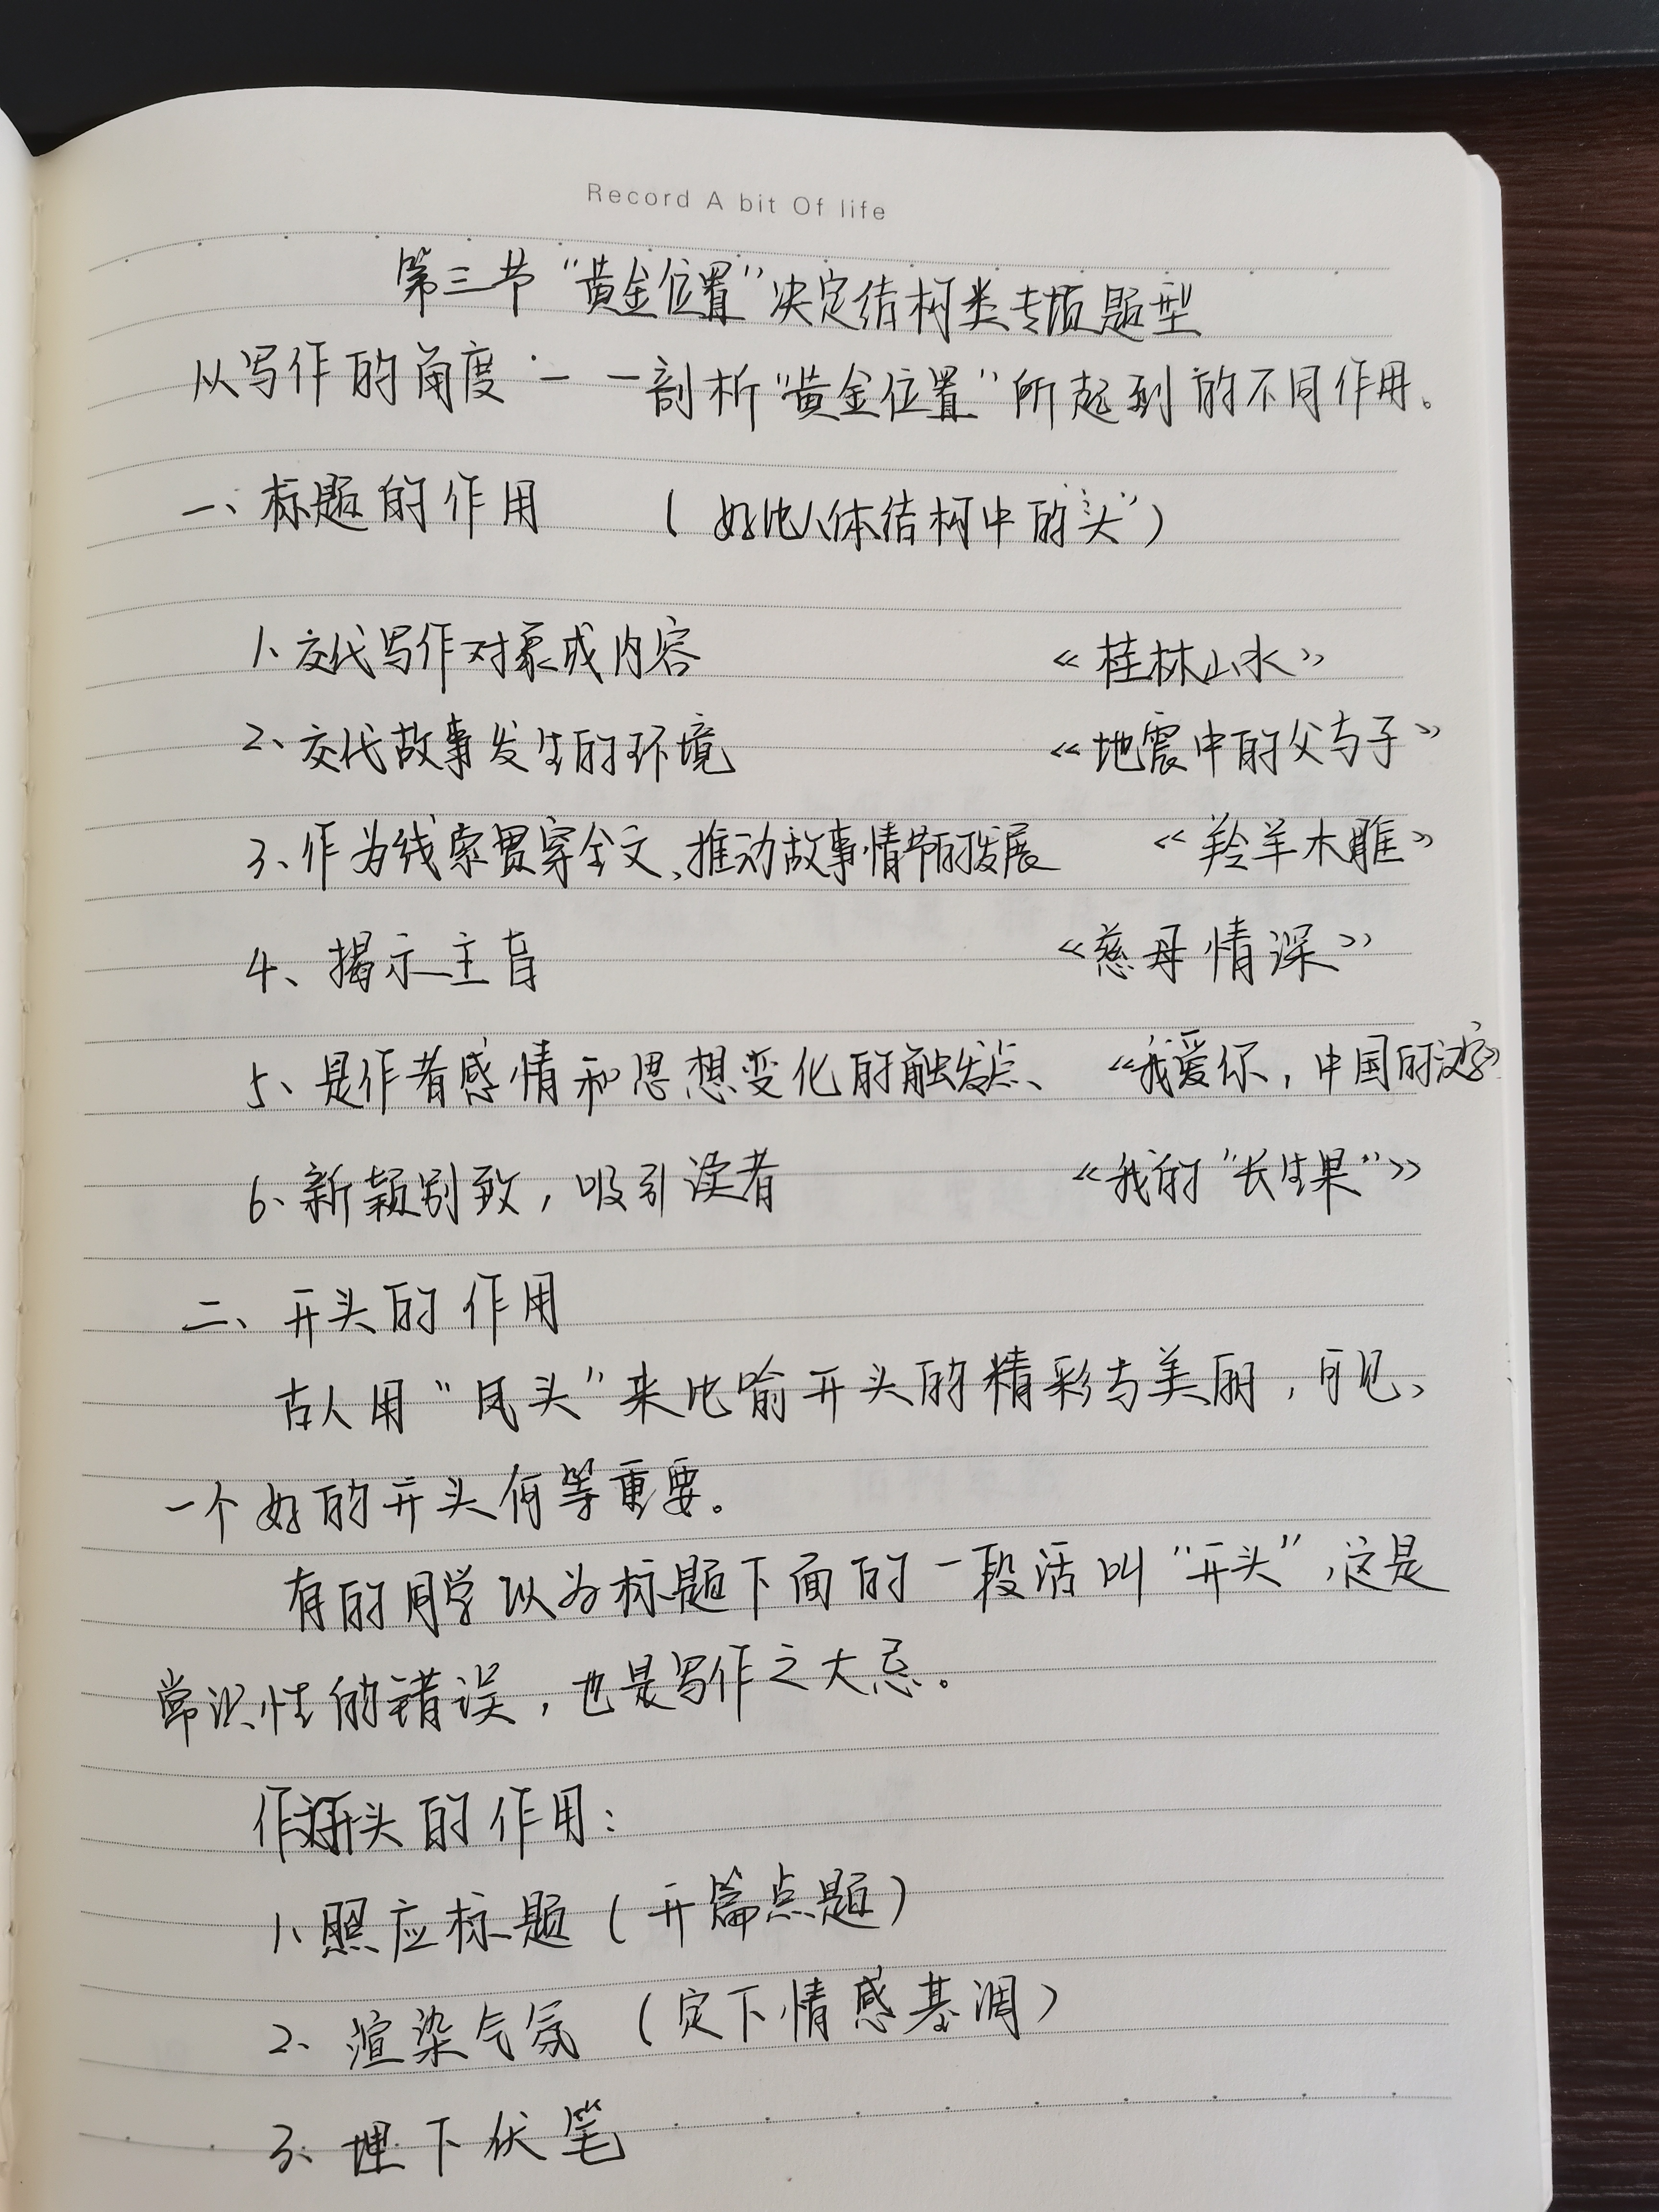 Record A bit Of life
第三节 “黄金位置”决定结构类专项题型
从写作的角度一一剖析“黄金位置”所起到的不同作用。
一、标题的作用 (好比人体结构中的“头”)
1、交代写作对象或内容 《桂林山水》
2、交代故事发生的环境 《地震中的父与子》
3、作为线索贯穿全文、推动故事情节的发展 《羚羊木雕》
4、揭示主旨 《慈母情深》
5、是作者感情和思想变化的触发点、 《我爱你，中国的汉字》
6、新颖别致，吸引读者 《我的“长生果”》
二、开头的作用
古人用“凤头”来比喻开头的精彩与美丽，可见、
一个好的开头何等重要。
有的同学以为标题下面的一段话叫“开头”，这是
常识性的错误，也是写作之大忌。
作文开头的作用：
1、照应标题(开篇点题)
2、渲染气氛(定下情感基调)
3、埋下伏笔